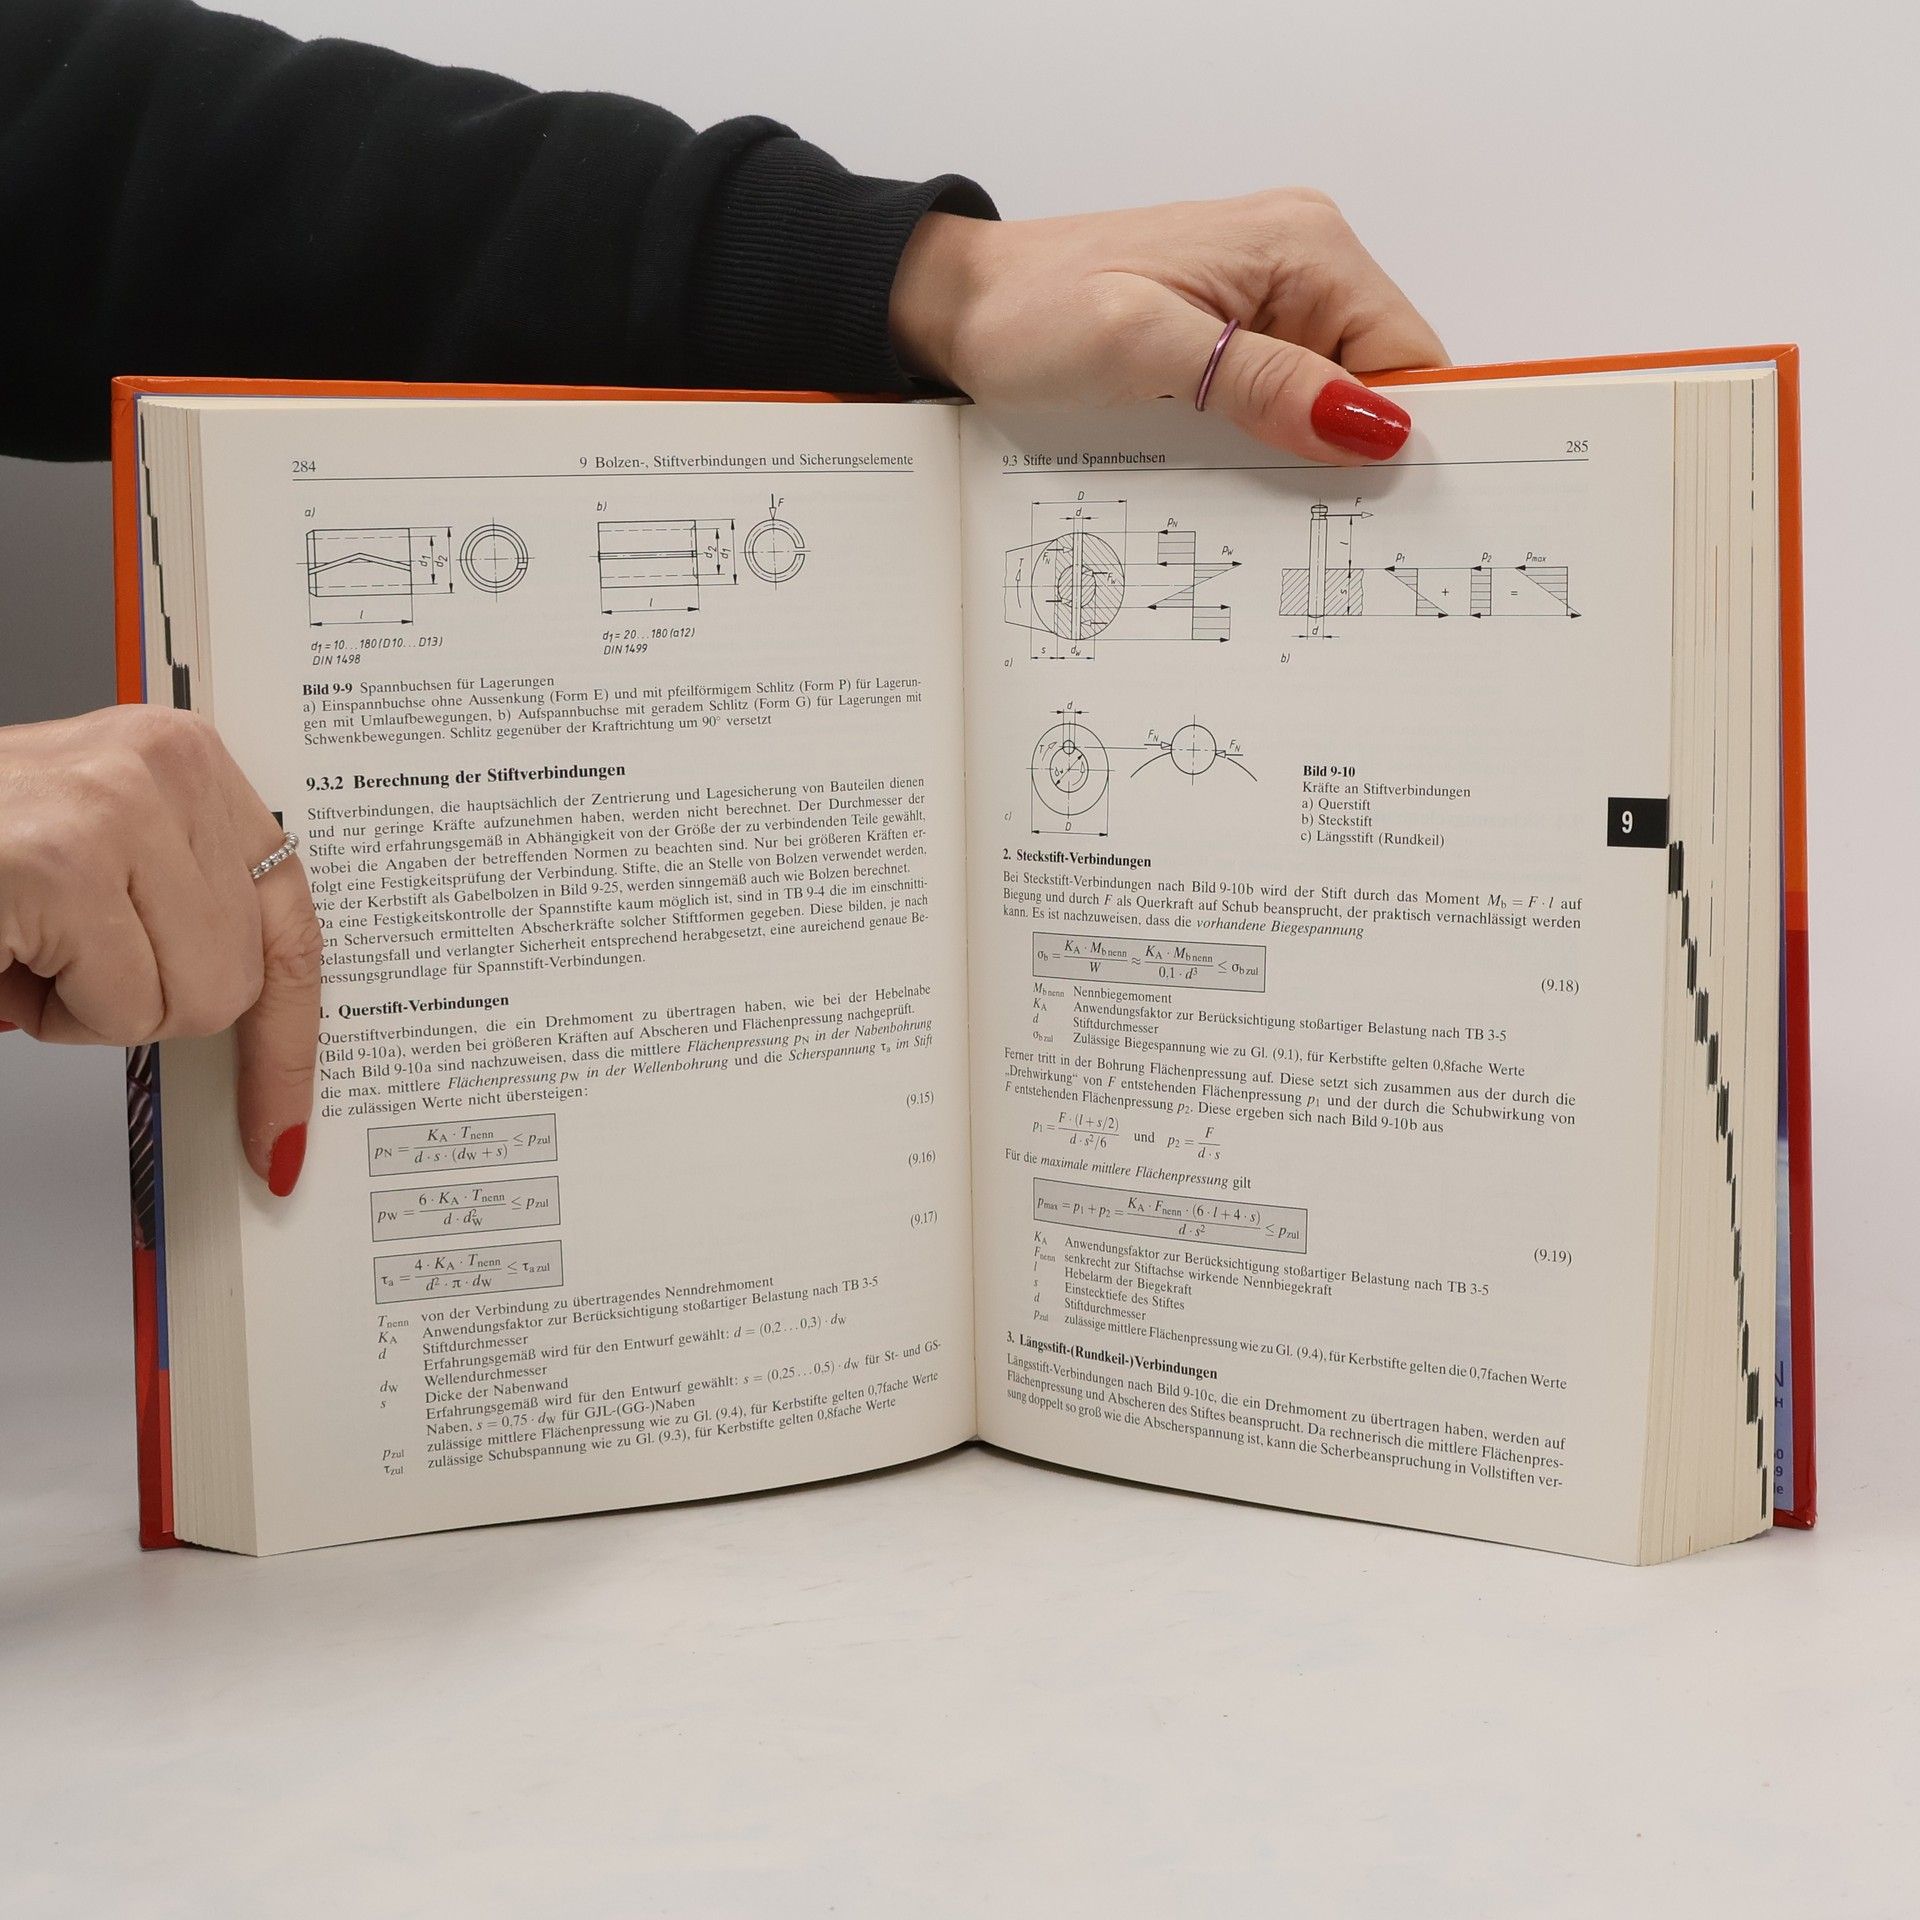 284
9 Bolzen-, Stiftverbindungen und Sicherungselemente
a)
d1
d2
l
d1 = 10...180 (D10...D13)
DIN 1498
b)
F
d2
d1
l
d1 = 20...180 (a12)
DIN 1499
Bild 9-9 Spannbuchsen für Lagerungen
a) Einspannbuchse ohne Aussenkung (Form E) und mit pfeilförmigem Schlitz (Form P) für Lagerun-
gen mit Umlaufbewegungen, b) Aufspannbuchse mit geradem Schlitz (Form G) für Lagerungen mit
Schwenkbewegungen. Schlitz gegenüber der Kraftrichtung um 90° versetzt
9.3.2 Berechnung der Stiftverbindungen
Stiftverbindungen, die hauptsächlich der Zentrierung und Lagesicherung von Bauteilen dienen
und nur geringe Kräfte aufzunehmen haben, werden nicht berechnet. Der Durchmesser der
Stifte wird erfahrungsgemäß in Abhängigkeit von der Größe der zu verbindenden Teile gewählt,
wobei die Angaben der betreffenden Normen zu beachten sind. Nur bei größeren Kräften er-
folgt eine Festigkeitsprüfung der Verbindung. Stifte, die an Stelle von Bolzen verwendet werden,
wie der Kerbstift als Gabelbolzen in Bild 9-25, werden sinngemäß auch wie Bolzen berechnet.
Da eine Festigkeitskontrolle der Spannstifte kaum möglich ist, sind in TB 9-4 die im einschnitti-
en Scherversuch ermittelten Abscherkräfte solcher Stiftformen gegeben. Diese bilden, je nach
Belastungsfall und verlangter Sicherheit entsprechend herabgesetzt, eine aureichend genaue Be-
messungsgrundlage für Spannstift-Verbindungen.
1. Querstift-Verbindungen
Querstiftverbindungen, die ein Drehmoment zu übertragen haben, wie bei der Hebelnabe
(Bild 9-10a), werden bei größeren Kräften auf Abscheren und Flächenpressung nachgeprüft.
Nach Bild 9-10a sind nachzuweisen, dass die mittlere Flächenpressung pN in der Nabenbohrung
die max. mittlere Flächenpressung pW in der Wellenbohrung und die Scherspannung τa im Stift
die zulässigen Werte nicht übersteigen:
pN = KA · Tnenn / d · s · (dW + s) ≤ pzul (9.15)
pW = 6 · KA · Tnenn / d · dW² ≤ pzul (9.16)
τa = 4 · KA · Tnenn / d² · π · dW ≤ τa zul (9.17)
Tnenn von der Verbindung zu übertragendes Nenndrehmoment
KA Anwendungsfaktor zur Berücksichtigung stoßartiger Belastung nach TB 3-5
d Stiftdurchmesser
Erfahrungsgemäß wird für den Entwurf gewählt: d = (0,2...0,3) · dW
dW Wellendurchmesser
s Dicke der Nabenwand
Erfahrungsgemäß wird für den Entwurf gewählt: s = (0,25...0,5) · dW für St- und GS-
Naben, s = 0,75 · dW für GJL-(GG-)Naben
pzul zulässige mittlere Flächenpressung wie zu Gl. (9.4), für Kerbstifte gelten 0,7fache Werte
τzul zulässige Schubspannung wie zu Gl. (9.3), für Kerbstifte gelten 0,8fache Werte
9.3 Stifte und Spannbuchsen
285
D
d
pN
pW
T
FN
FW
s
dW
a)
F
l
s
d
p1
p2
pmax
+
=
b)
d
T
D
FN
FN
c)
Bild 9-10
Kräfte an Stiftverbindungen
a) Querstift
b) Steckstift
c) Längsstift (Rundkeil)
9
2. Steckstift-Verbindungen
Bei Steckstift-Verbindungen nach Bild 9-10b wird der Stift durch das Moment Mb = F · l auf
Biegung und durch F als Querkraft auf Schub beansprucht, der praktisch vernachlässigt werden
kann. Es ist nachzuweisen, dass die vorhandene Biegespannung
σb = KA · Mb nenn / W ≈ KA · Mb nenn / 0,1 · d³ ≤ σb zul (9.18)
Mb nenn Nennbiegemoment
KA Anwendungsfaktor zur Berücksichtigung stoßartiger Belastung nach TB 3-5
d Stiftdurchmesser
σb zul Zulässige Biegespannung wie zu Gl. (9.1), für Kerbstifte gelten 0,8fache Werte
Ferner tritt in der Bohrung Flächenpressung auf. Diese setzt sich zusammen aus der durch die
„Drehwirkung“ von F entstehenden Flächenpressung p1 und der durch die Schubwirkung von
F entstehenden Flächenpressung p2. Diese ergeben sich nach Bild 9-10b aus
p1 = F · (l + s/2) / d · s²/6 und p2 = F / d · s
Für die maximale mittlere Flächenpressung gilt
pmax = p1 + p2 = KA · Fnenn · (6 · l + 4 · s) / d · s² ≤ pzul (9.19)
KA Anwendungsfaktor zur Berücksichtigung stoßartiger Belastung nach TB 3-5
Fnenn senkrecht zur Stiftachse wirkende Nennbiegekraft
l Hebelarm der Biegekraft
s Einstecktiefe des Stiftes
d Stiftdurchmesser
pzul zulässige mittlere Flächenpressung wie zu Gl. (9.4), für Kerbstifte gelten die 0,7fachen Werte
3. Längsstift-(Rundkeil-)Verbindungen
Längsstift-Verbindungen nach Bild 9-10c, die ein Drehmoment zu übertragen haben, werden auf
Flächenpressung und Abscheren des Stiftes beansprucht. Da rechnerisch die mittlere Flächenpres-
sung doppelt so groß wie die Abscherspannung ist, kann die Scherbeanspruchung in Vollstiften ver-